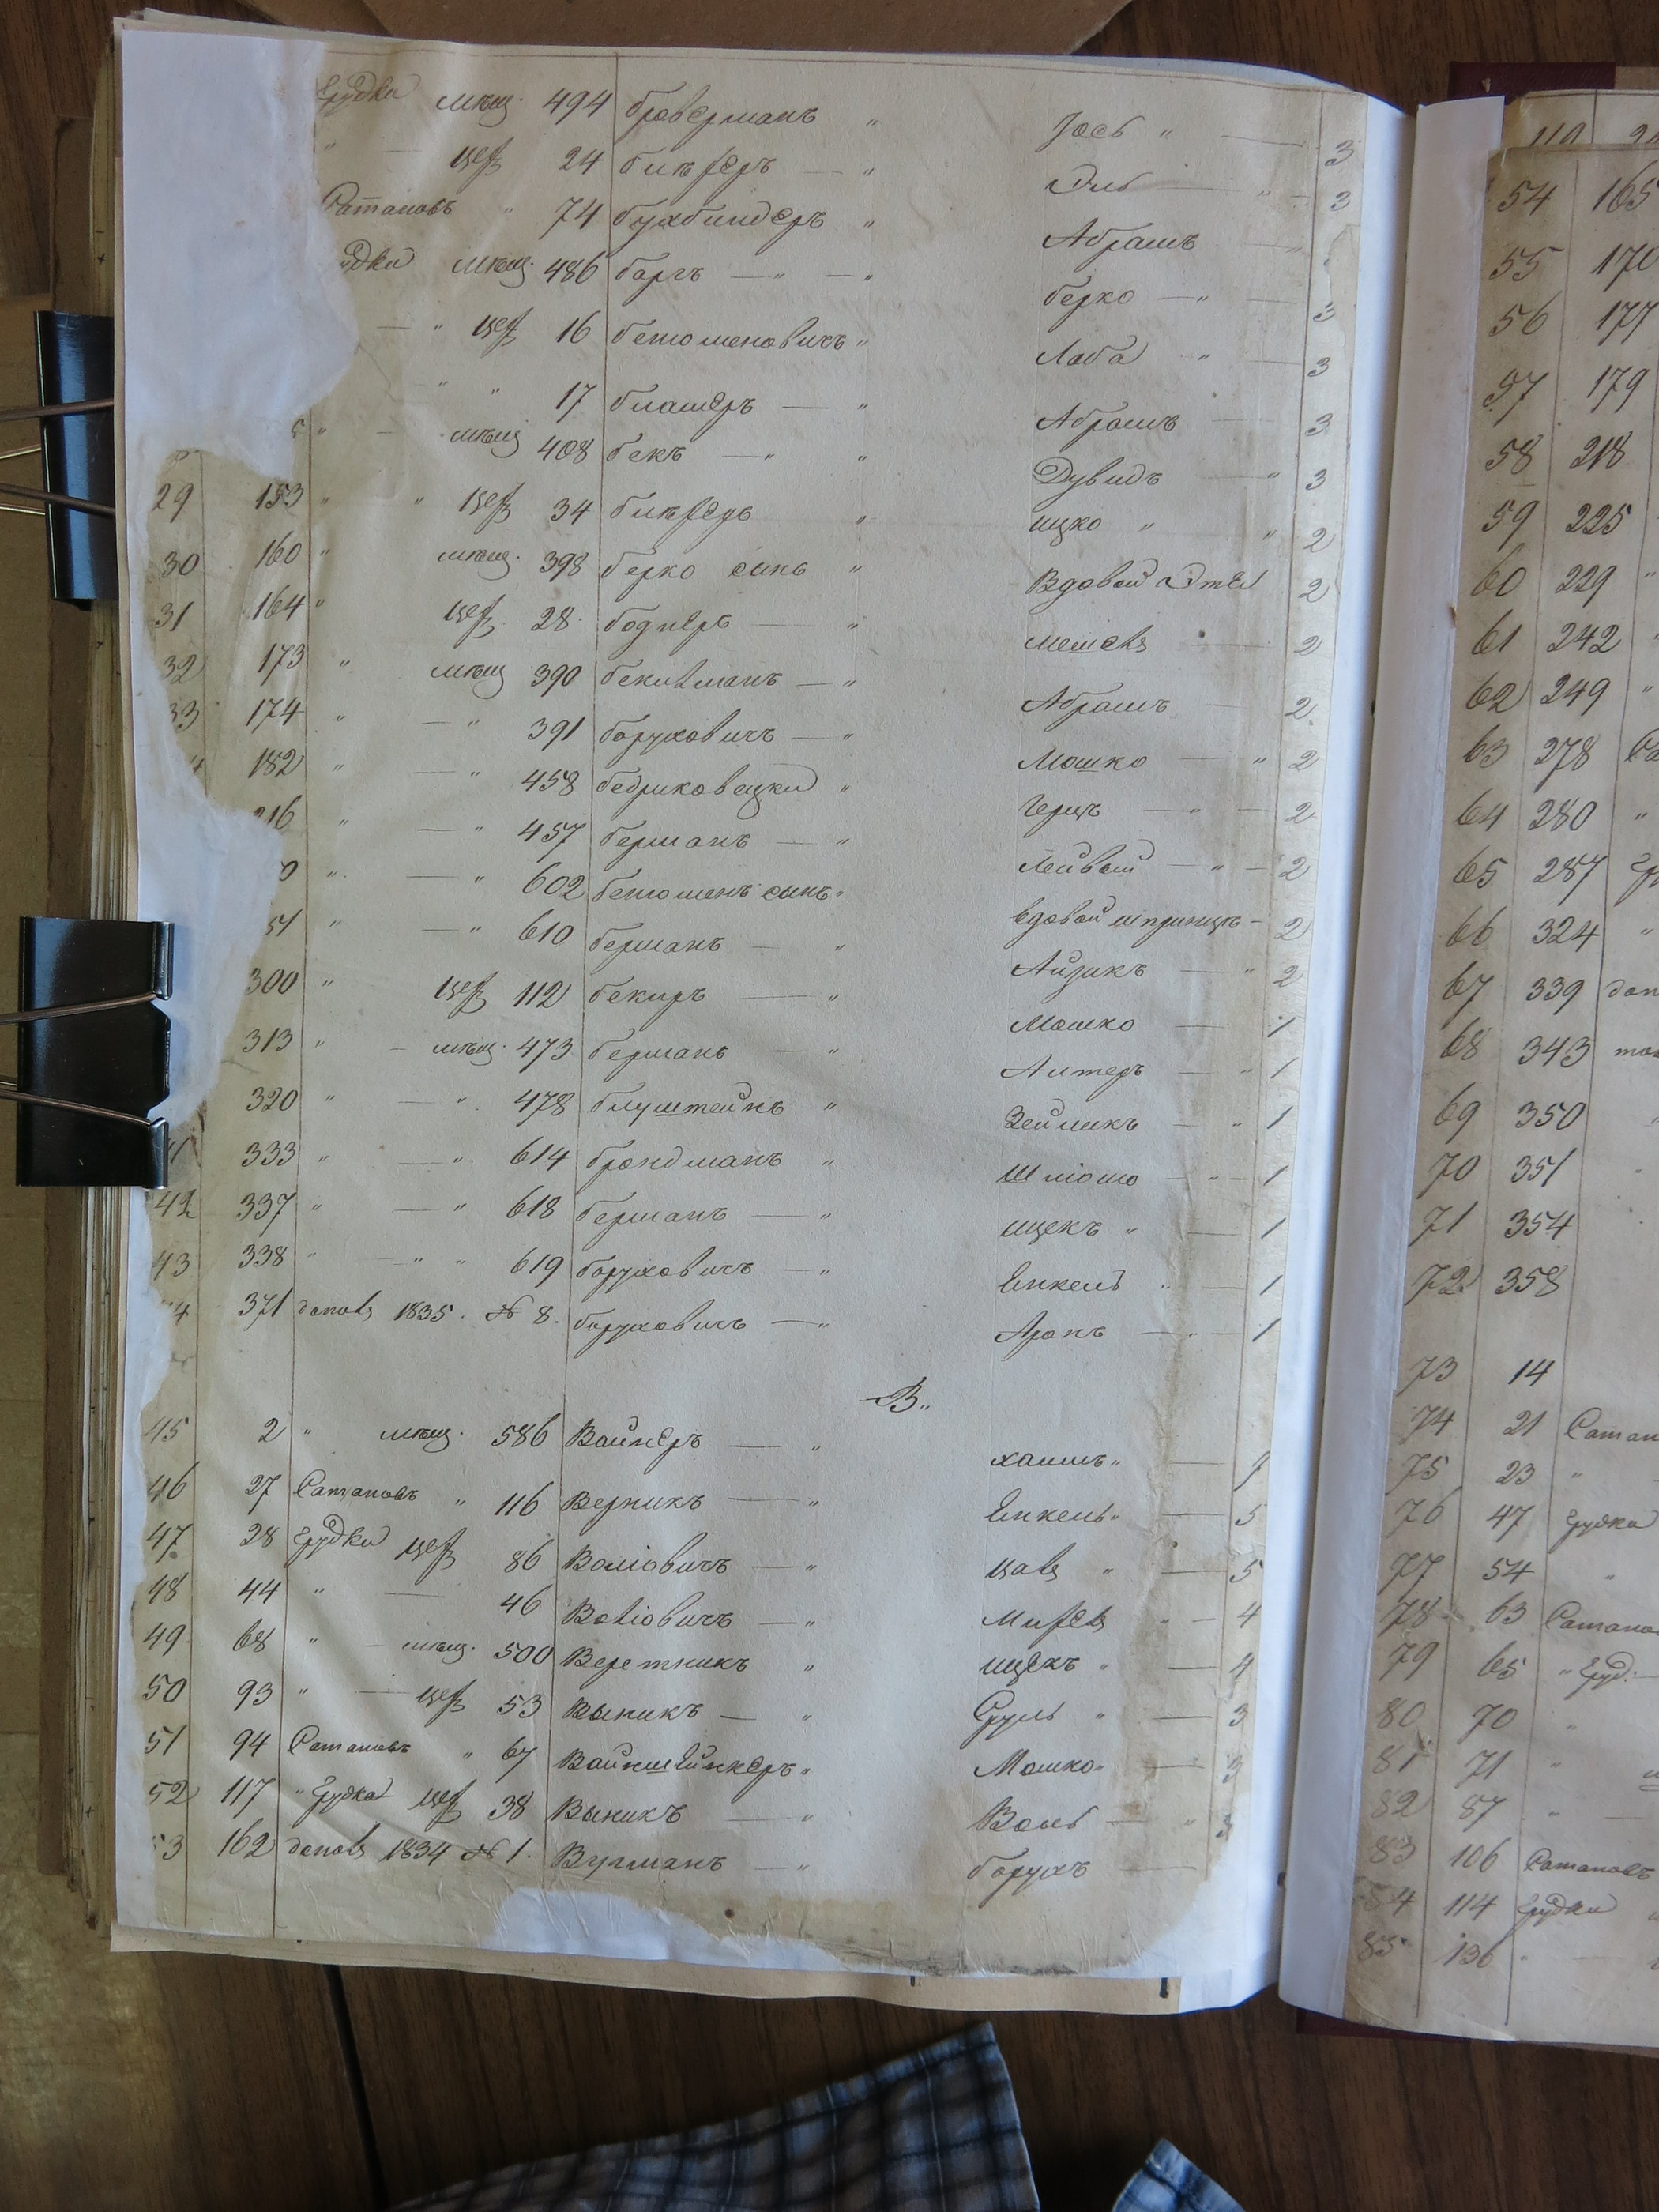 Грудка мѣщ. 494 Броверманъ " Іось " 3
" цех 24 Бикферъ " Эль " 3
Сатановъ " 74 Бухбиндеръ " Абрамъ
удка мѣщ. 486 Боргъ " " Берко " 3
" цех 16 " Лаба " 3
" " 17 Блашеръ " Абрамъ 3
" мѣщ 408 Бекъ " " Дувидъ " 3
29 153 " " цех 34 " ицко " " 2
30 160 " мѣщ. 398 Берко сынъ " Вдовой Этел 2
31 164 " цех 28 Боднеръ " 2
32 173 " мѣщ 390 " Абрамъ 2
33 174 " " 391 Боруховичъ " Мошко " 2
182 " " 458 Бедриковецкий " Герцъ " 2
216 " " 457 Берманъ " Лейба " 2
0 " " 602 сынъ " Вдовой шпринцъ 2
51 " " 610 Берманъ " Айзикъ " 2
300 " цех 112 Бекиръ " Мошко 1
313 " мѣщ. 473 Берманъ " Алтеръ " 1
320 " " 478 Блуштейнъ " Зейликъ " 1
333 " " 614 Брондманъ " Шліомо " 1
42 337 " " 618 Берманъ " ицекъ " 1
43 338 " " " 619 Боруховичъ " Енкель " 1
4 371 1835. № 8. Боруховичъ " Аронъ " 1
В..
45 2 " мѣщ. 586 Вайнеръ " хаимъ "
46 27 Сатановъ " 116 Верникъ " Енкель " 5
47 28 Грудка цех 86 Воліовичъ " " 5
48 44 " 46 Воліовичъ " " 4
49 68 " мѣщ. 500 Веретникъ " ицекъ " 4
50 93 " цех 53 Выникъ " Сруль " 3
51 94 Сатановъ " 67 Вайншейнкеръ " Мошко " 3
52 117 " Грудка цех 38 Выникъ " Воль " 3
53 162 1834 № 1. Вугманъ " Борухъ
110
54 165
55 170
56 177
57 179
58 218
59 225
60 229 "
61 242 "
62 249 "
63 278 Са
64 280 "
65 287 Гр
66 324 "
67 339
68 343
69 350
70 351
71 354
72 358
73 14
74 21 Сатан
75 23 "
76 47 Грудка
77 54 "
78 63 Сатано
79 65 " Груд.
80 70 "
81 71 "
82 87 "
83 106 Сатановъ
84 114 Грудка
85 136 "